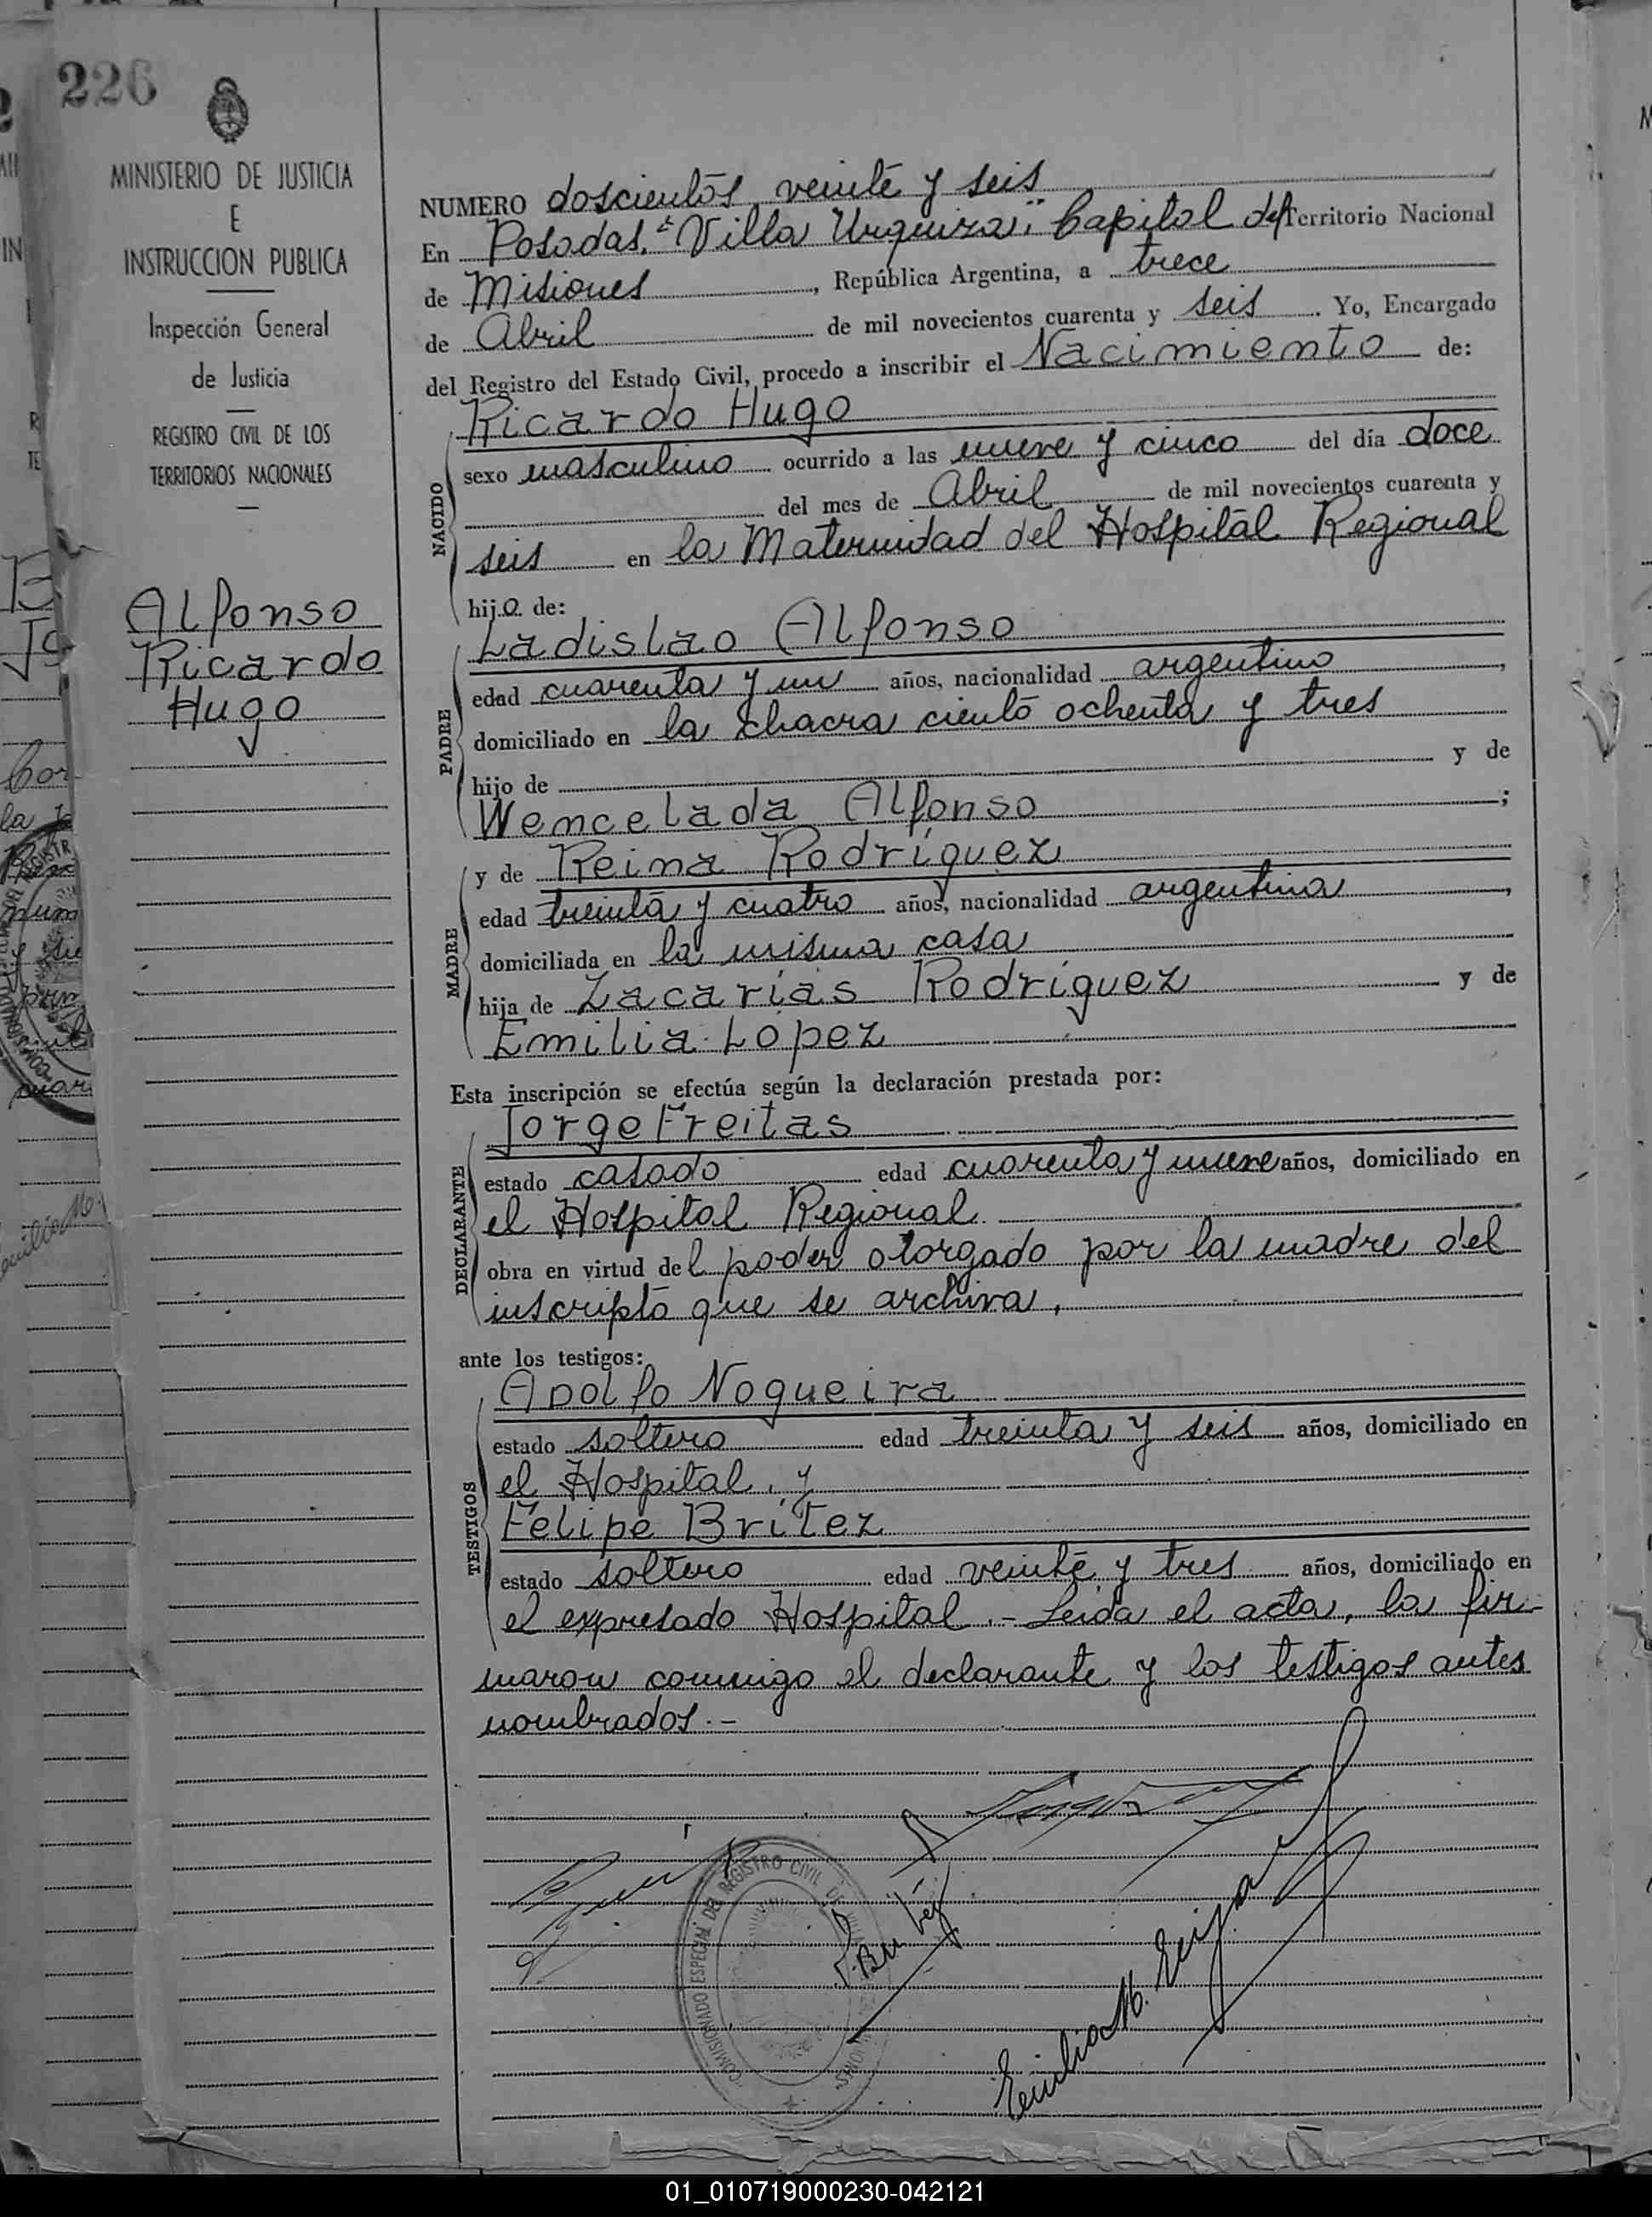 226
MINISTERIO DE JUSTICIA
E
INSTRUCCION PUBLICA
Inspección General
de Justicia
REGISTRO CIVIL DE LOS
TERRITORIOS NACIONALES
Alfonso
Ricardo
Hugo
NUMERO doscientos veinte y seis
En Posadas, "Villa Urquiza", Capital del Territorio Nacional
de Misiones, República Argentina, a trece
de Abril de mil novecientos cuarenta y seis. Yo, Encargado
del Registro del Estado Civil, procedo a inscribir el Nacimiento de:
Ricardo Hugo
NACIDO
sexo masculino ocurrido a las nueve y cinco del día doce
del mes de Abril de mil novecientos cuarenta y
seis en la Maternidad del Hospital Regional
hijo de:
Ladislao Alfonso
PADRE
edad cuarenta y un años, nacionalidad argentino,
domiciliado en la chacra ciento ochenta y tres
hijo de y de
Wencelada Alfonso;
y de Reina Rodríguez
MADRE
edad treinta y cuatro años, nacionalidad argentina,
domiciliada en la misma casa
hija de Zacarías Rodríguez y de
Emilia López
Esta inscripción se efectúa según la declaración prestada por:
Jorge Freitas
DECLARANTE
estado casado edad cuarenta y nueve años, domiciliado en
el Hospital Regional
obra en virtud del poder otorgado por la madre del
inscripto que se archiva,
ante los testigos:
Adolfo Nogueira
TESTIGOS
estado soltero edad treinta y seis años, domiciliado en
el Hospital, y
Felipe Brítez
estado soltero edad veinte y tres años, domiciliado en
el expresado Hospital.- Leída el acta, la fir-
maron conmigo el declarante y los testigos antes
nombrados.-
COMISIONADO ESPECIAL DEL REGISTRO CIVIL DE
Emilio M.
01_010719000230-042121